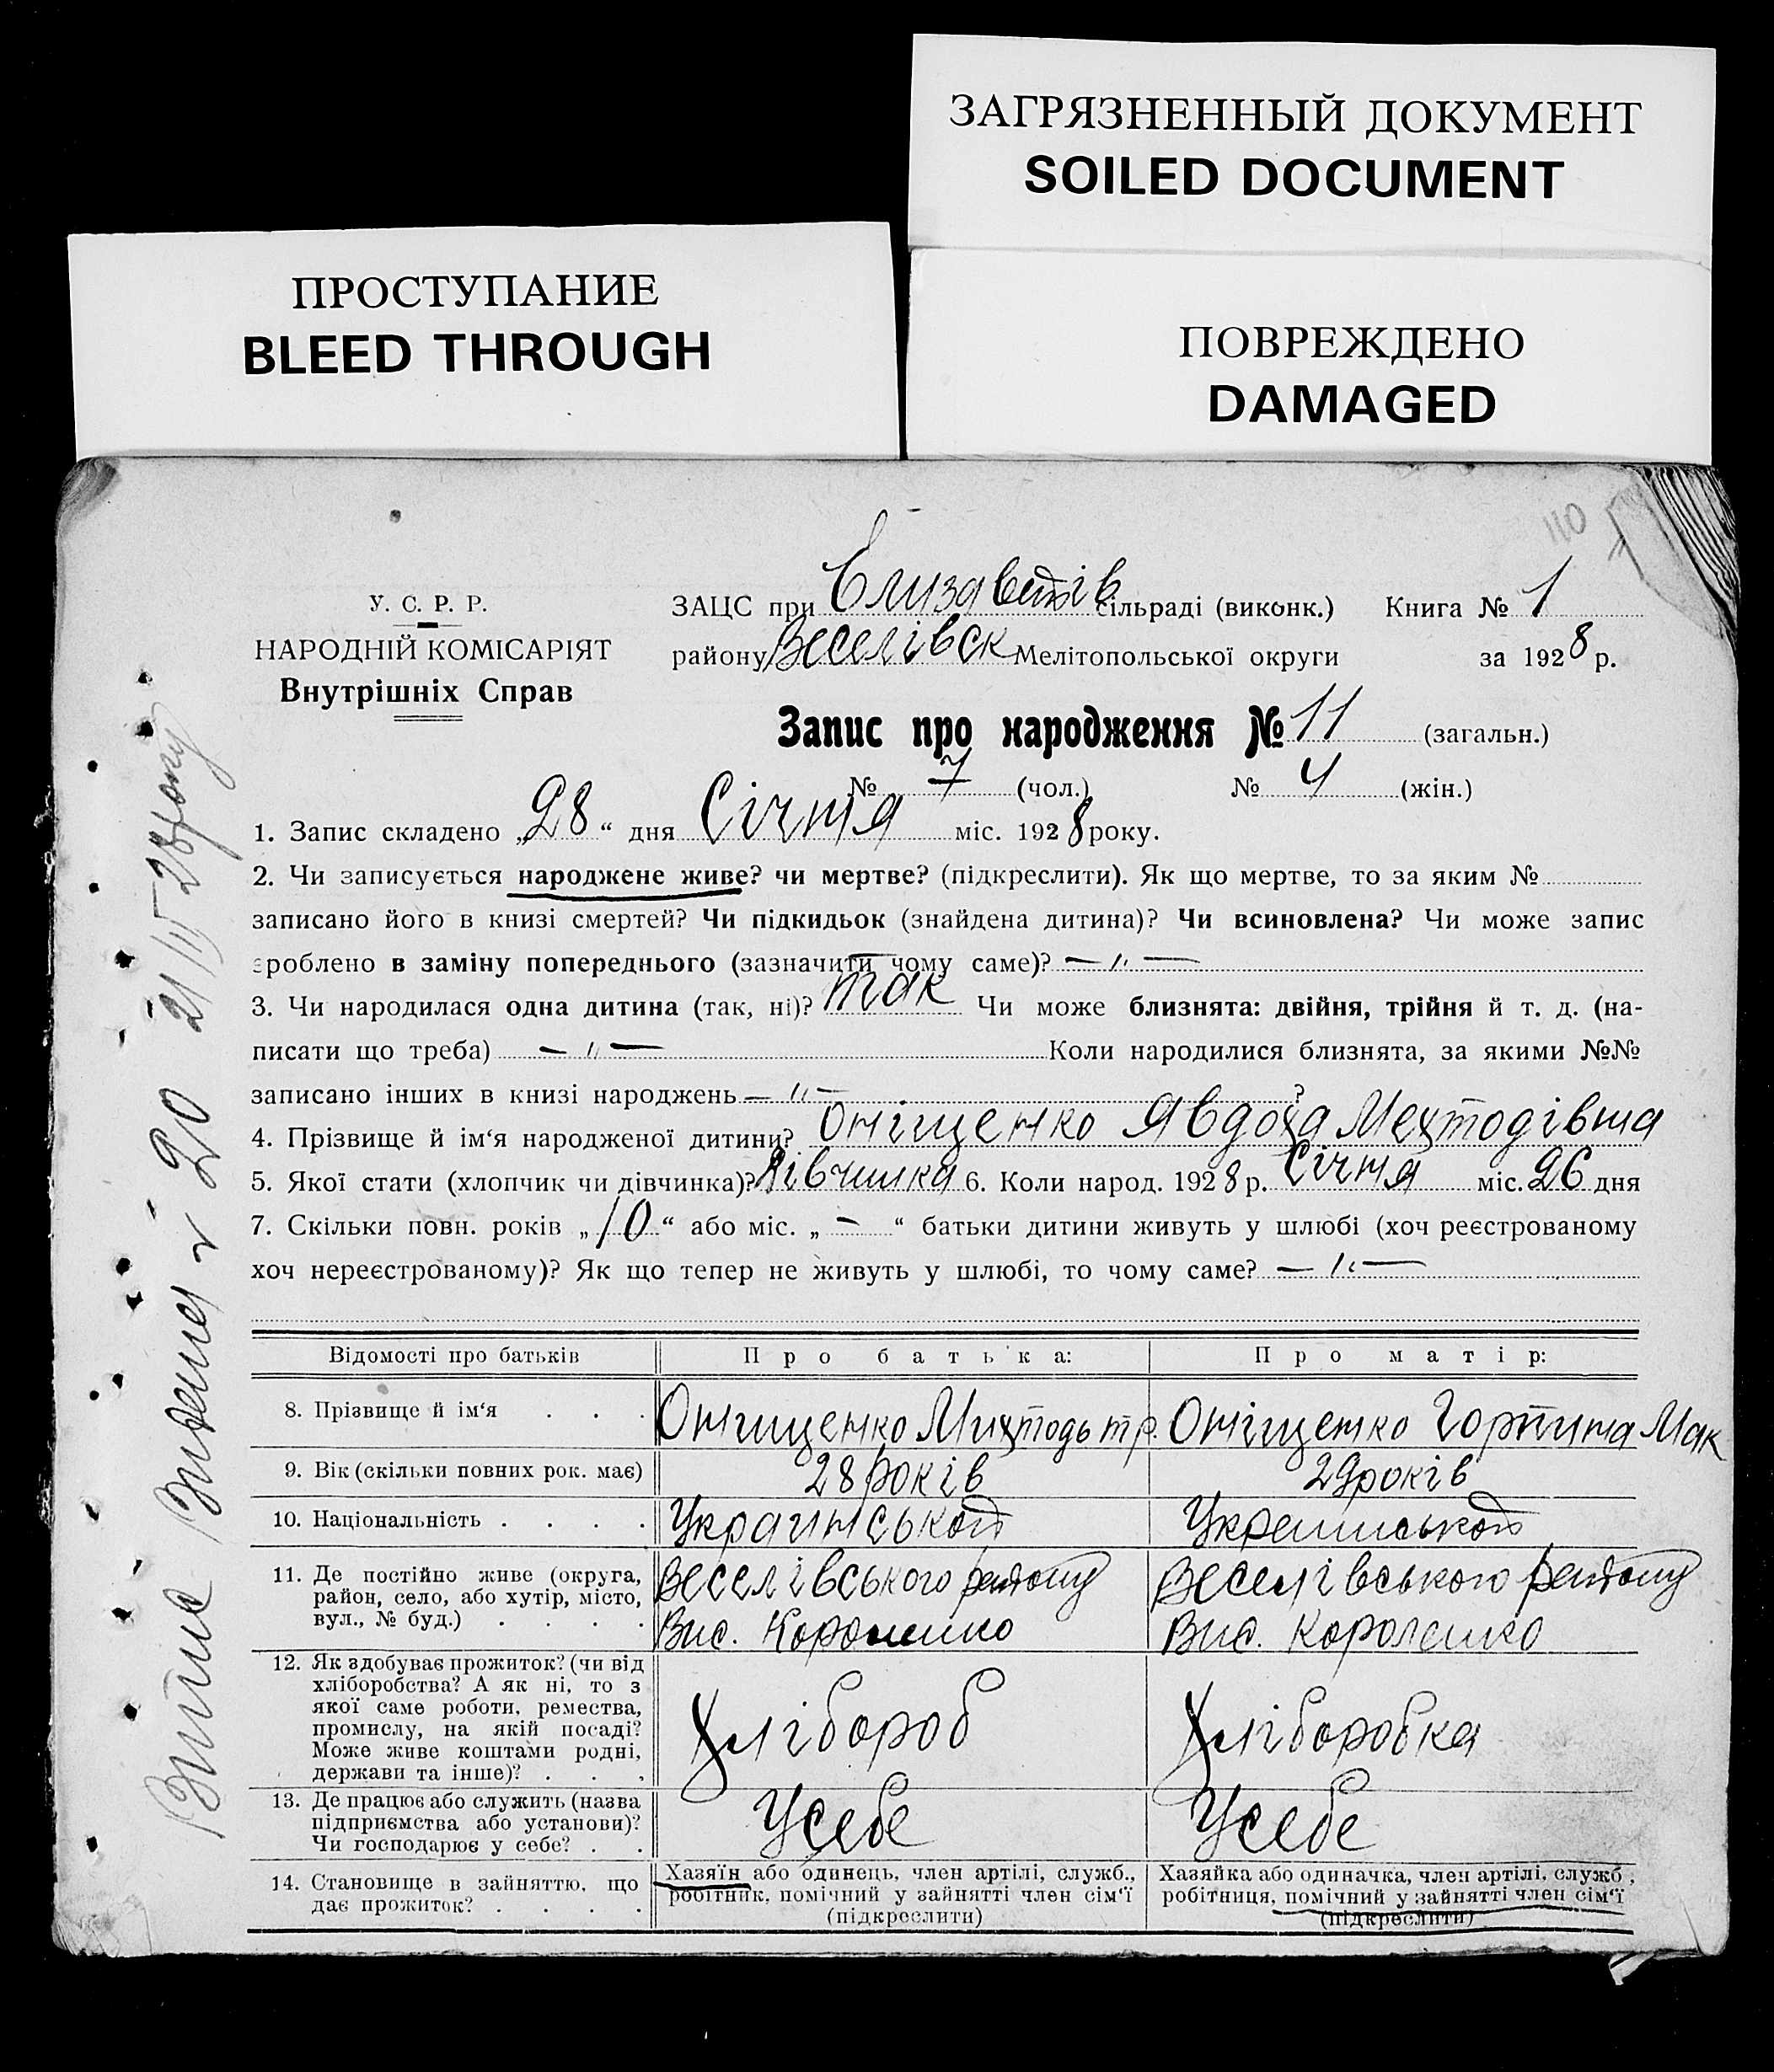 ЗАГРЯЗНЕННЫЙ ДОКУМЕНТ
SOILED DOCUMENT
ПРОСТУПАНИЕ
BLEED THROUGH
ПОВРЕЖДЕНО
DAMAGED
110
У. С. Р. Р.
НАРОДНІЙ КОМІСАРІЯТ
Внутрішніх Справ
ЗАЦС при Єлизаветів сільраді (виконк.) Книга № 1
району Веселівск Мелітопольської округи за 1928 р.
Запис про народження № 11 (загальн.)
№ 7 (чол.) № 4 (жін.)
1. Запис складено „28“ дня Січня міс. 1928 року.
2. Чи записується народжене живе? чи мертве? (підкреслити). Як що мертве, то за яким №
записано його в книзі смертей? Чи підкидьок (знайдена дитина)? Чи всиновлена? Чи може запис
зроблено в заміну попереднього (зазначити чому саме)? — „ —
3. Чи народилася одна дитина (так, ні)? так Чи може близнята: двійня, трійня й т. д. (на-
писати що треба) — „ — Коли народилися близнята, за якими №№
записано інших в книзі народжень — „ — ?
4. Прізвище й ім‘я народженої дитини? Оніщенко Явдоха Мехтодівна
5. Якої стати (хлопчик чи дівчинка)? Дівчинка 6. Коли народ. 1928 р. Січня міс. 26 дня
7. Скільки повн. років „10“ або міс. „ – “ батьки дитини живуть у шлюбі (хоч реєстрованому
хоч нереєстрованому)? Як що тепер не живуть у шлюбі, то чому саме? — „ —
Відомості про батьків Про батька: Про матір:
8. Прізвище й ім‘я . . . Онищенко Михтодь тр. Оніщенко Горпина Мак
9. Вік (скільки повних рок. має) 28 років 29 років
10. Національність . . . . Украинськой Украинськой
11. Де постійно живе (округа,
район, село, або хутір, місто,
вул., № буд.) . . . .
Веселівського району
Вис. Короленко
Веселівського району
Вис. Короленко
12. Як здобуває прожиток? (чи від
хліборобства? А як ні, то з
якої саме роботи, ремества,
промислу, на якій посаді?
Може живе коштами родні,
держави та інше)? . . .
Хлібороб
Хліборобка
13. Де працює або служить (назва
підприємства або установи)?
Чи господарює у себе? . .
Усебе
Усебе
14. Становище в зайняттю, що
дає прожиток? . . . .
Хазяїн або одинець, член артілі, служб.,
робітник, помічний у зайнятті член сім‘ї
(підкреслити)
Хазяйка або одиначка, член артілі, служб.,
робітниця, помічний у зайнятті член сім‘ї
(підкреслити)